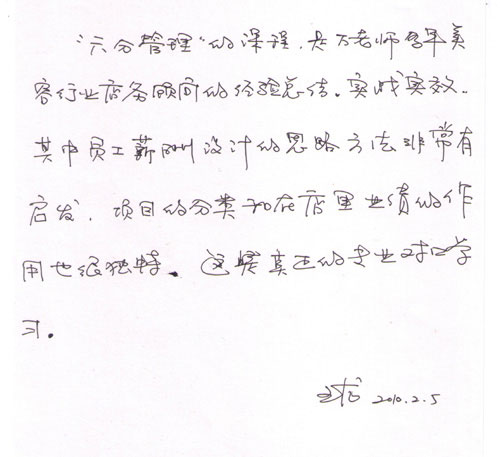 “六分管理”的课程，是万老师多年美
容行业商务顾问的经验总结。实战实效.
其中员工薪酬设计的思路方法非常有
启发，项目的分类和在店里业绩的作
用也很独特。这是真正的专业对口学
习.
2010.2.5